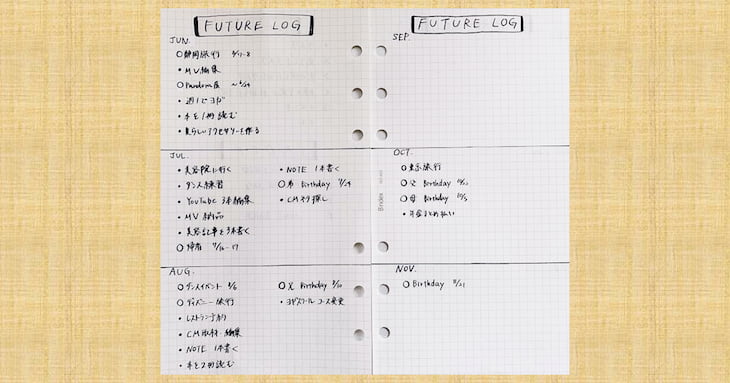 FUTURE LOG
JUN.
○静岡旅行
• MV編集
○Pandora展 ~6/29
• 週1でヨガ
• 本を1冊読む
• 夏らしいアクセサリーを作る
JUL.
• 美容院に行く
• ダンス練習
• YouTube 3本編集
• MV 納品
• 美容記事を3本書く
○帰省 7/16-17
• NOTE 1本書く
○弟 Birthday 7/29
• CMネタ探し
AUG.
○ダンスイベント 8/6
○ディズニー旅行
• レストラン予約
• CM取材・編集
• NOTE 1本書く
• 本を2冊読む
○父 Birthday
• ヨガスクールコース変更
FUTURE LOG
SEP.
OCT.
○東京旅行
○父 Birthday
○母 Birthday
• 年金まとめ払い
NOV.
○Birthday 11/21
Bindex